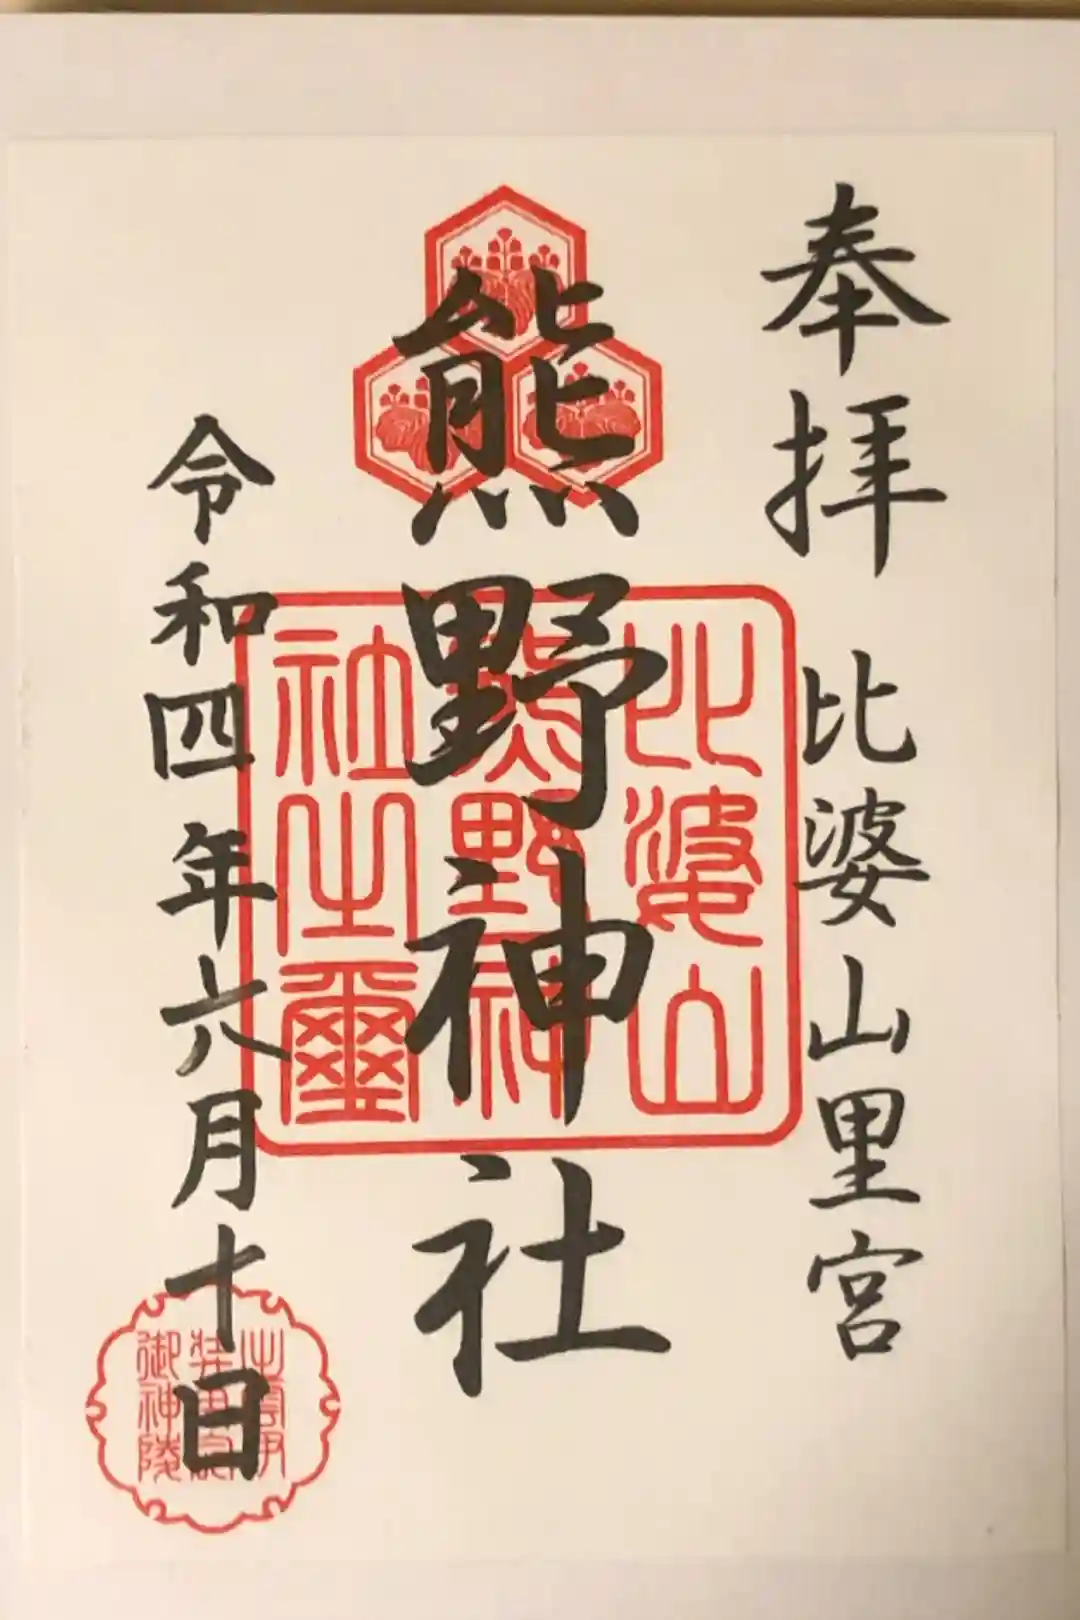 奉拝 比婆山里宮
熊野神社
令和四年六月十日
比婆山
熊野神
社之璽
御神陵